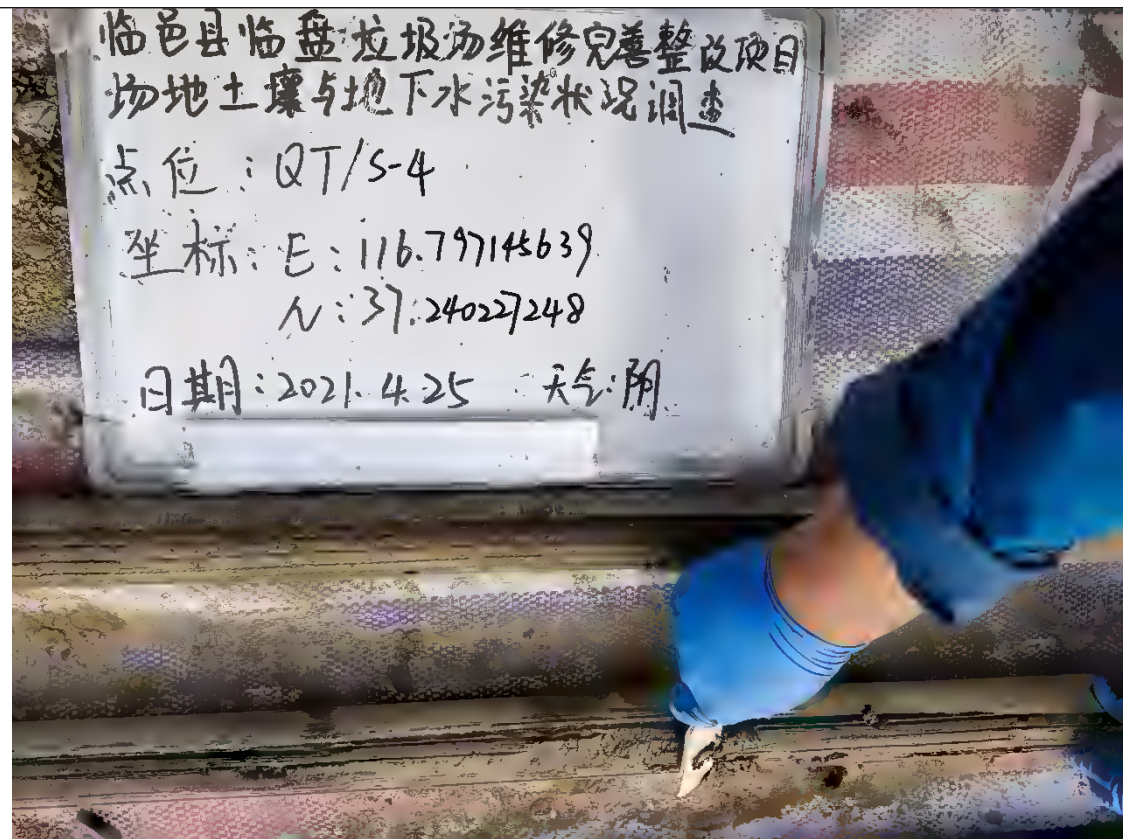 临邑县临盘垃圾场维修完善整改项目
场地土壤与地下水污染状况调查
点位：QT/S-4
坐标：E：116.797145639
N：37.240227248
日期：2021.4.25 天气：阴